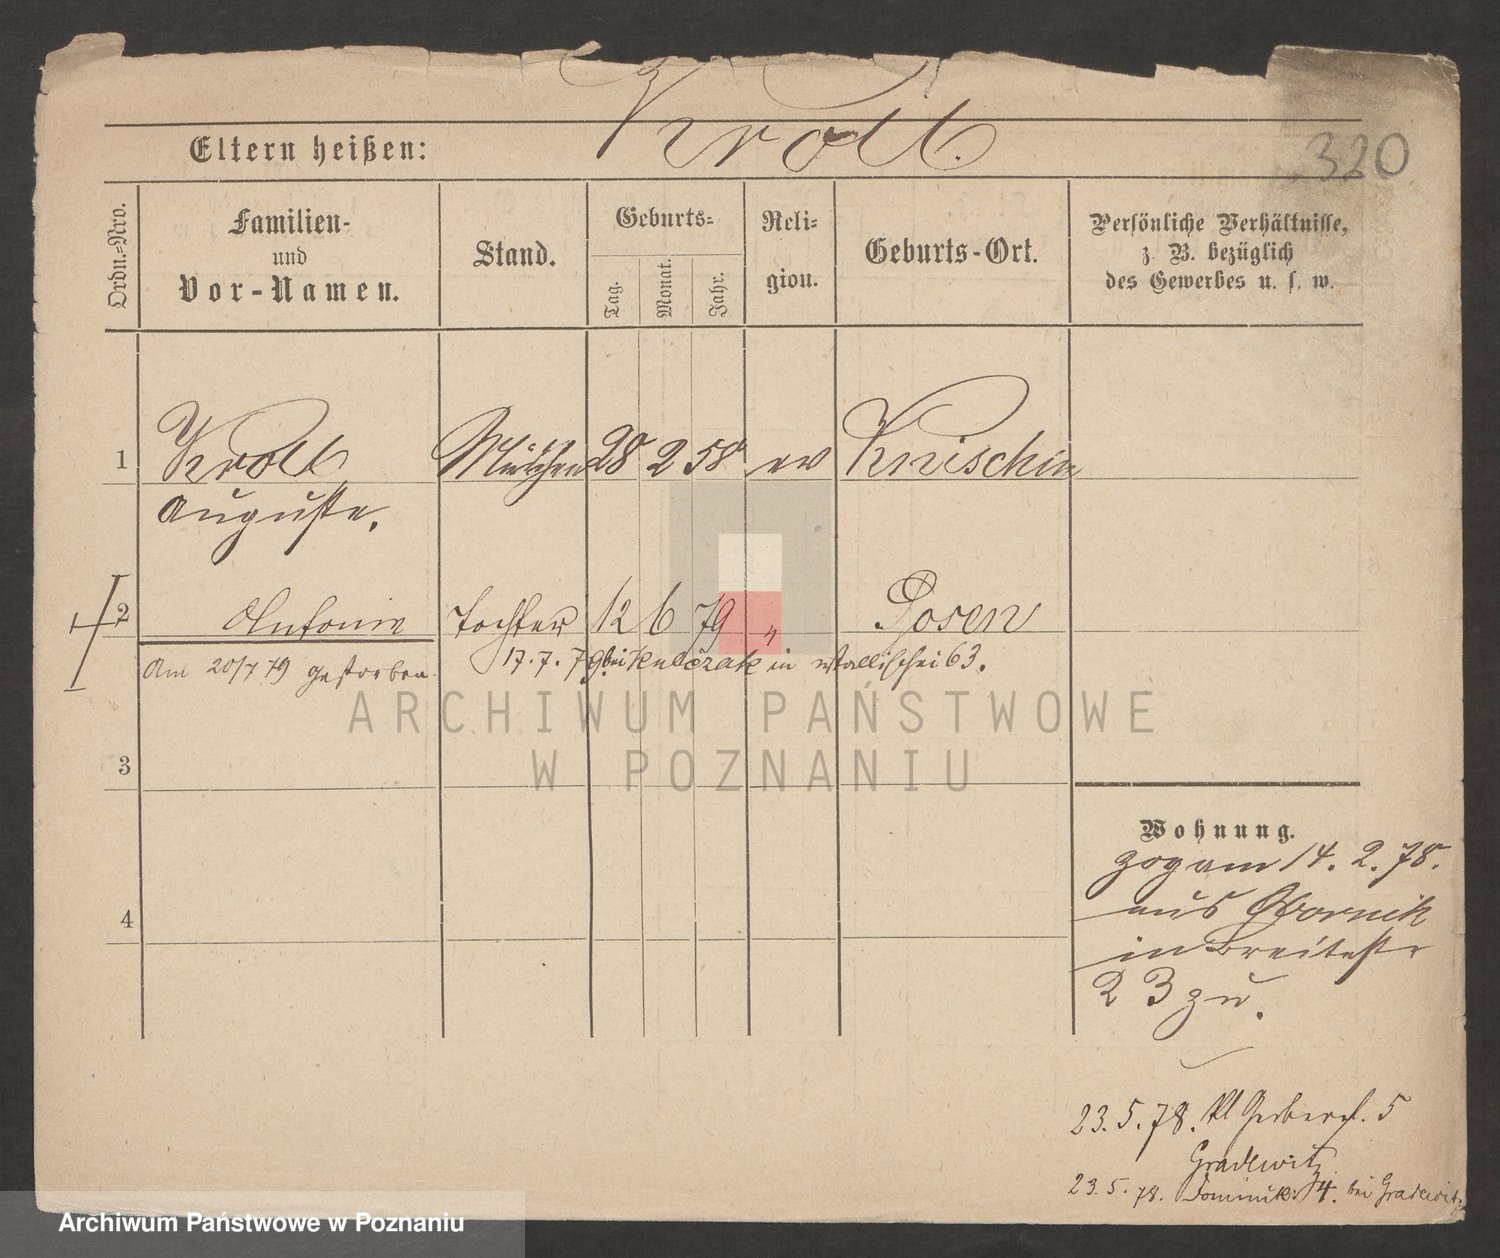 Kroll.
320
Eltern heißen:
Ordn.=Nro.
Familien-
und
Vor-Namen.
Stand.
Geburts=
Tag.
Monat.
Jahr.
Reli=
gion.
Geburts-Ort.
Persönliche Verhältnisse,
z. B. bezüglich
des Gewerbes u. s. w.
1 Kroll 28 2 58 ev
Auguste.
2 Antonie Tochter 12 6 79 " Posen
Am 20/7 79 gestorben. 17. 7. 79. bei Kulczak in Wallischei 63.
ARCHIWUM PAŃSTWOWE
W POZNANIU
3
Wohnung.
zog am 14. 2. 78.
aus Obornik
4
in Breitestr
23 zu.
23. 5. 78. Kl Gerberst. 5
Gradewitz
23. 5. 78. Dominik: 4. bei Gradewitz
Archiwum Państwowe w Poznaniu